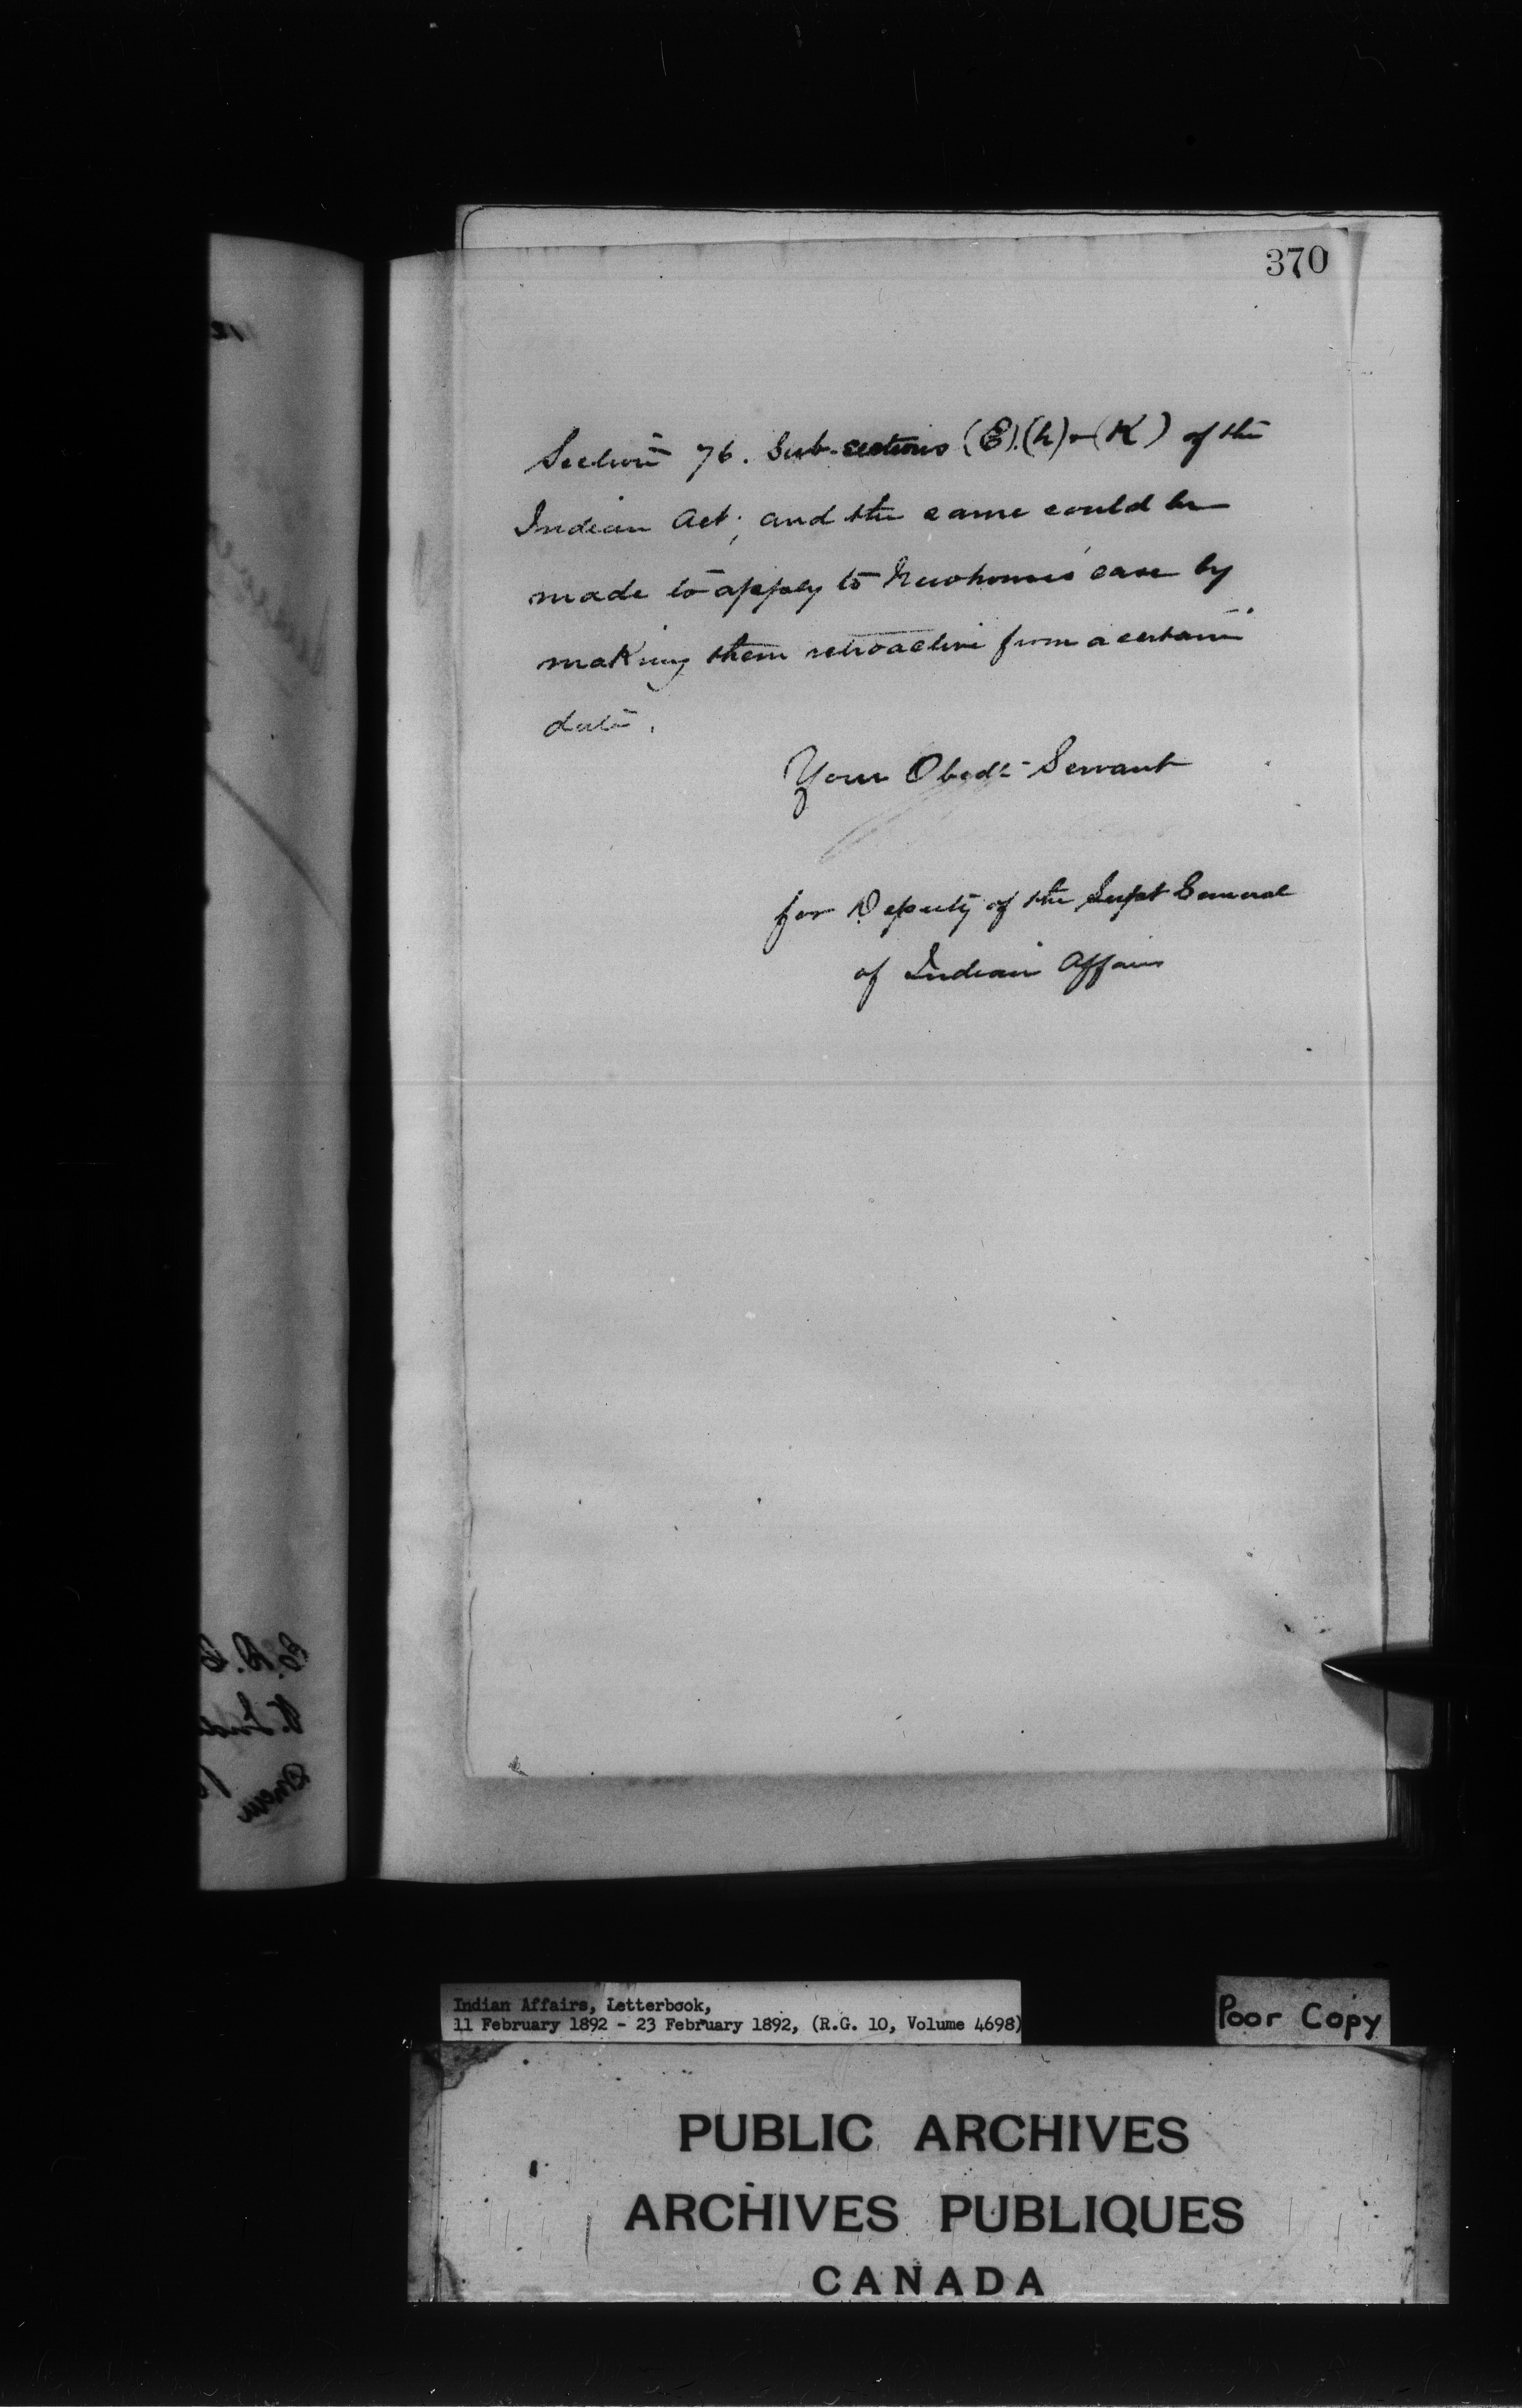 370
Section 76. Sub-sections (E).(h) & (K) of the
Indian Act; and the same could be
made to apply to Newhouse's case by
making them retroactive from a certain
date.
Your Obedt Servant
for Deputy of the Supt General
of Indian Affairs
Indian Affairs, Letterbook,
11 February 1892 - 23 February 1892, (R.G. 10, Volume 4698)
Poor Copy
PUBLIC ARCHIVES
ARCHIVES PUBLIQUES
CANADA